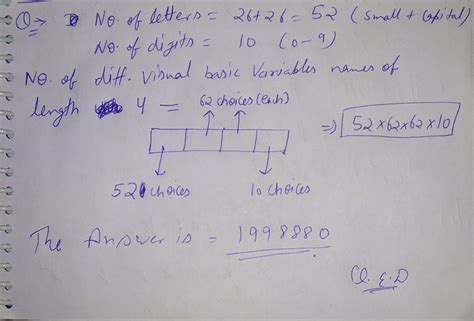 Q⇒ No. of letters = 26+26 = 52 (small + Capital)
No. of digits = 10 (0-9)
No. of diff. visual basic variables names of
length 4 = 62 choices (each)
⇒ 52×62×62×10
52 choices 10 choices
The Answer is = 1998880
Q.E.D